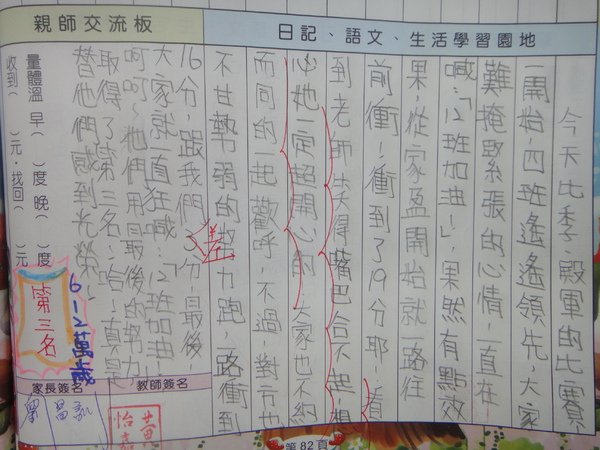 日記、語文、生活學習園地
今天比季殿軍的比賽
一開始,四班遙遙領先,大家
難掩緊張的心情,一直在
喊:「12班加油!」果然有點效
果,從家盈開始就一路往
前衝!衝到了19分耶!看
到老師笑得嘴巴合不起,想
必她一定超開心的 大家也不約
而同的一起歡呼,不過,對方也
不甘勢弱的努力跑,路衝到
16分,跟我們差3分,最後,
大家就一直狂喊:「12班加油!
呵呵~他們用最後的努力
取得了第三名!哈!真是
替他們感到光榮!
親師交流板
量體溫 早( )度 晚( )度
收到( )元,找回( )元
6-12萬歲
第三名
教師簽名
家長簽名
第82頁